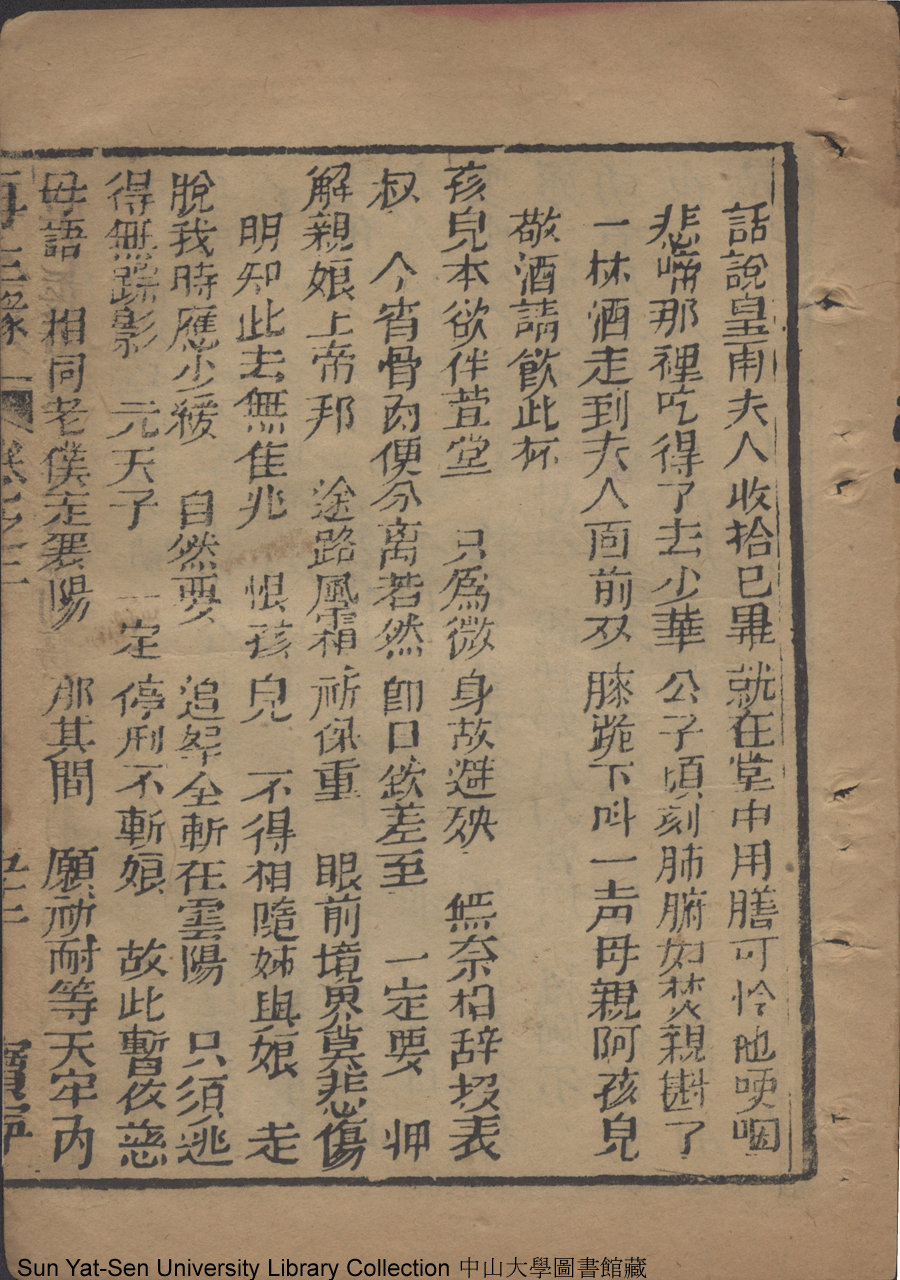 話說皇甫夫人收拾已畢就在堂中用膳可怜他哽咽
悲啼那裡吃得了去少華公子頃刻肺腑如焚親斟了
一杯酒走到夫人面前双膝跪下叫一声母親阿孩兒
敬酒請飲此杯
孩兒本欲伴萱堂 只為微身故避殃 無奈相辞投表
叔 今宵骨肉便分离若然即日欽差至 一定要 押
解親娘上帝邦 途路風霜祈保重 眼前境界莫悲傷
明知此去無隹兆 恨孩兒 不得相隨姊與娘 走
脫我時應少緩 自然要 追拏全斬在雲陽 只須逃
得無踪影 元天子 一定停刑不斬娘 故此暫依慈
母語 相同老僕走襄陽 那其間 願祈耐等天牢內
再生緣 卷之二 五十二 寶寧
Sun Yat-Sen University Library Collection 中山大學圖書館藏